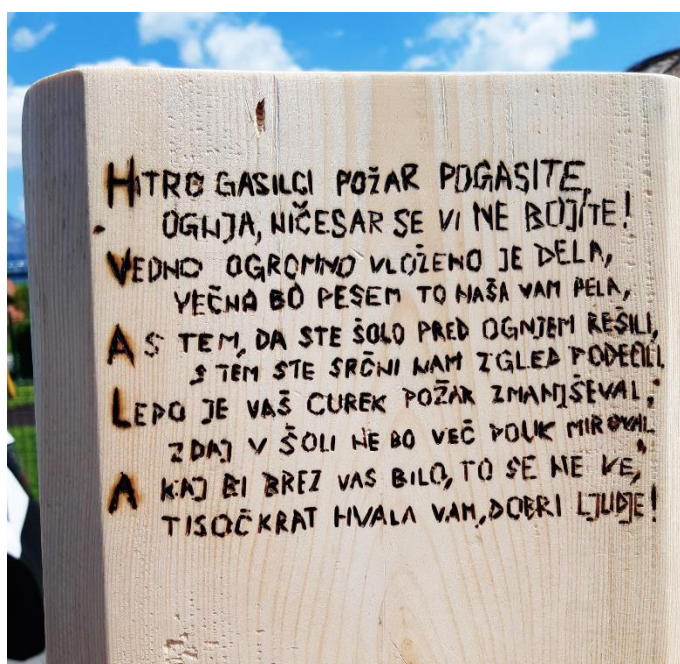 HITRO GASILCI POŽAR POGASITE,
OGNJA, NIČESAR SE VI NE BOJITE!
VEDNO OGROMNO VLOŽENO JE DELA,
VEČNO BO PESEM TO NAŠA VAM PELA,
A S TEM, DA STE ŠOLO PRED OGNJEM REŠILI,
S TEM STE SRČNI NAM ZGLED PODELILI.
LEPO JE VAŠ CUREK POŽAR ZMANJŠEVAL,
ZDAJ V ŠOLI NE BO VEČ POUK MIROVAL.
A KAJ BI BREZ VAS BILO, TO SE NE VE,
TISOČKRAT HVALA VAM, DOBRI LJUDJE!